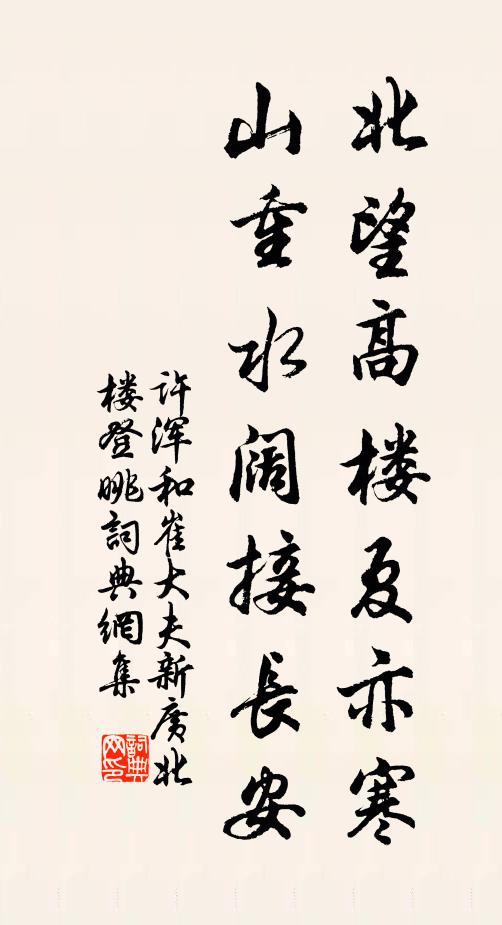 北望高楼夏亦寒
山重水阔接長安
许浑和崔大夫新广北
楼登眺詞典網集
詞典网印